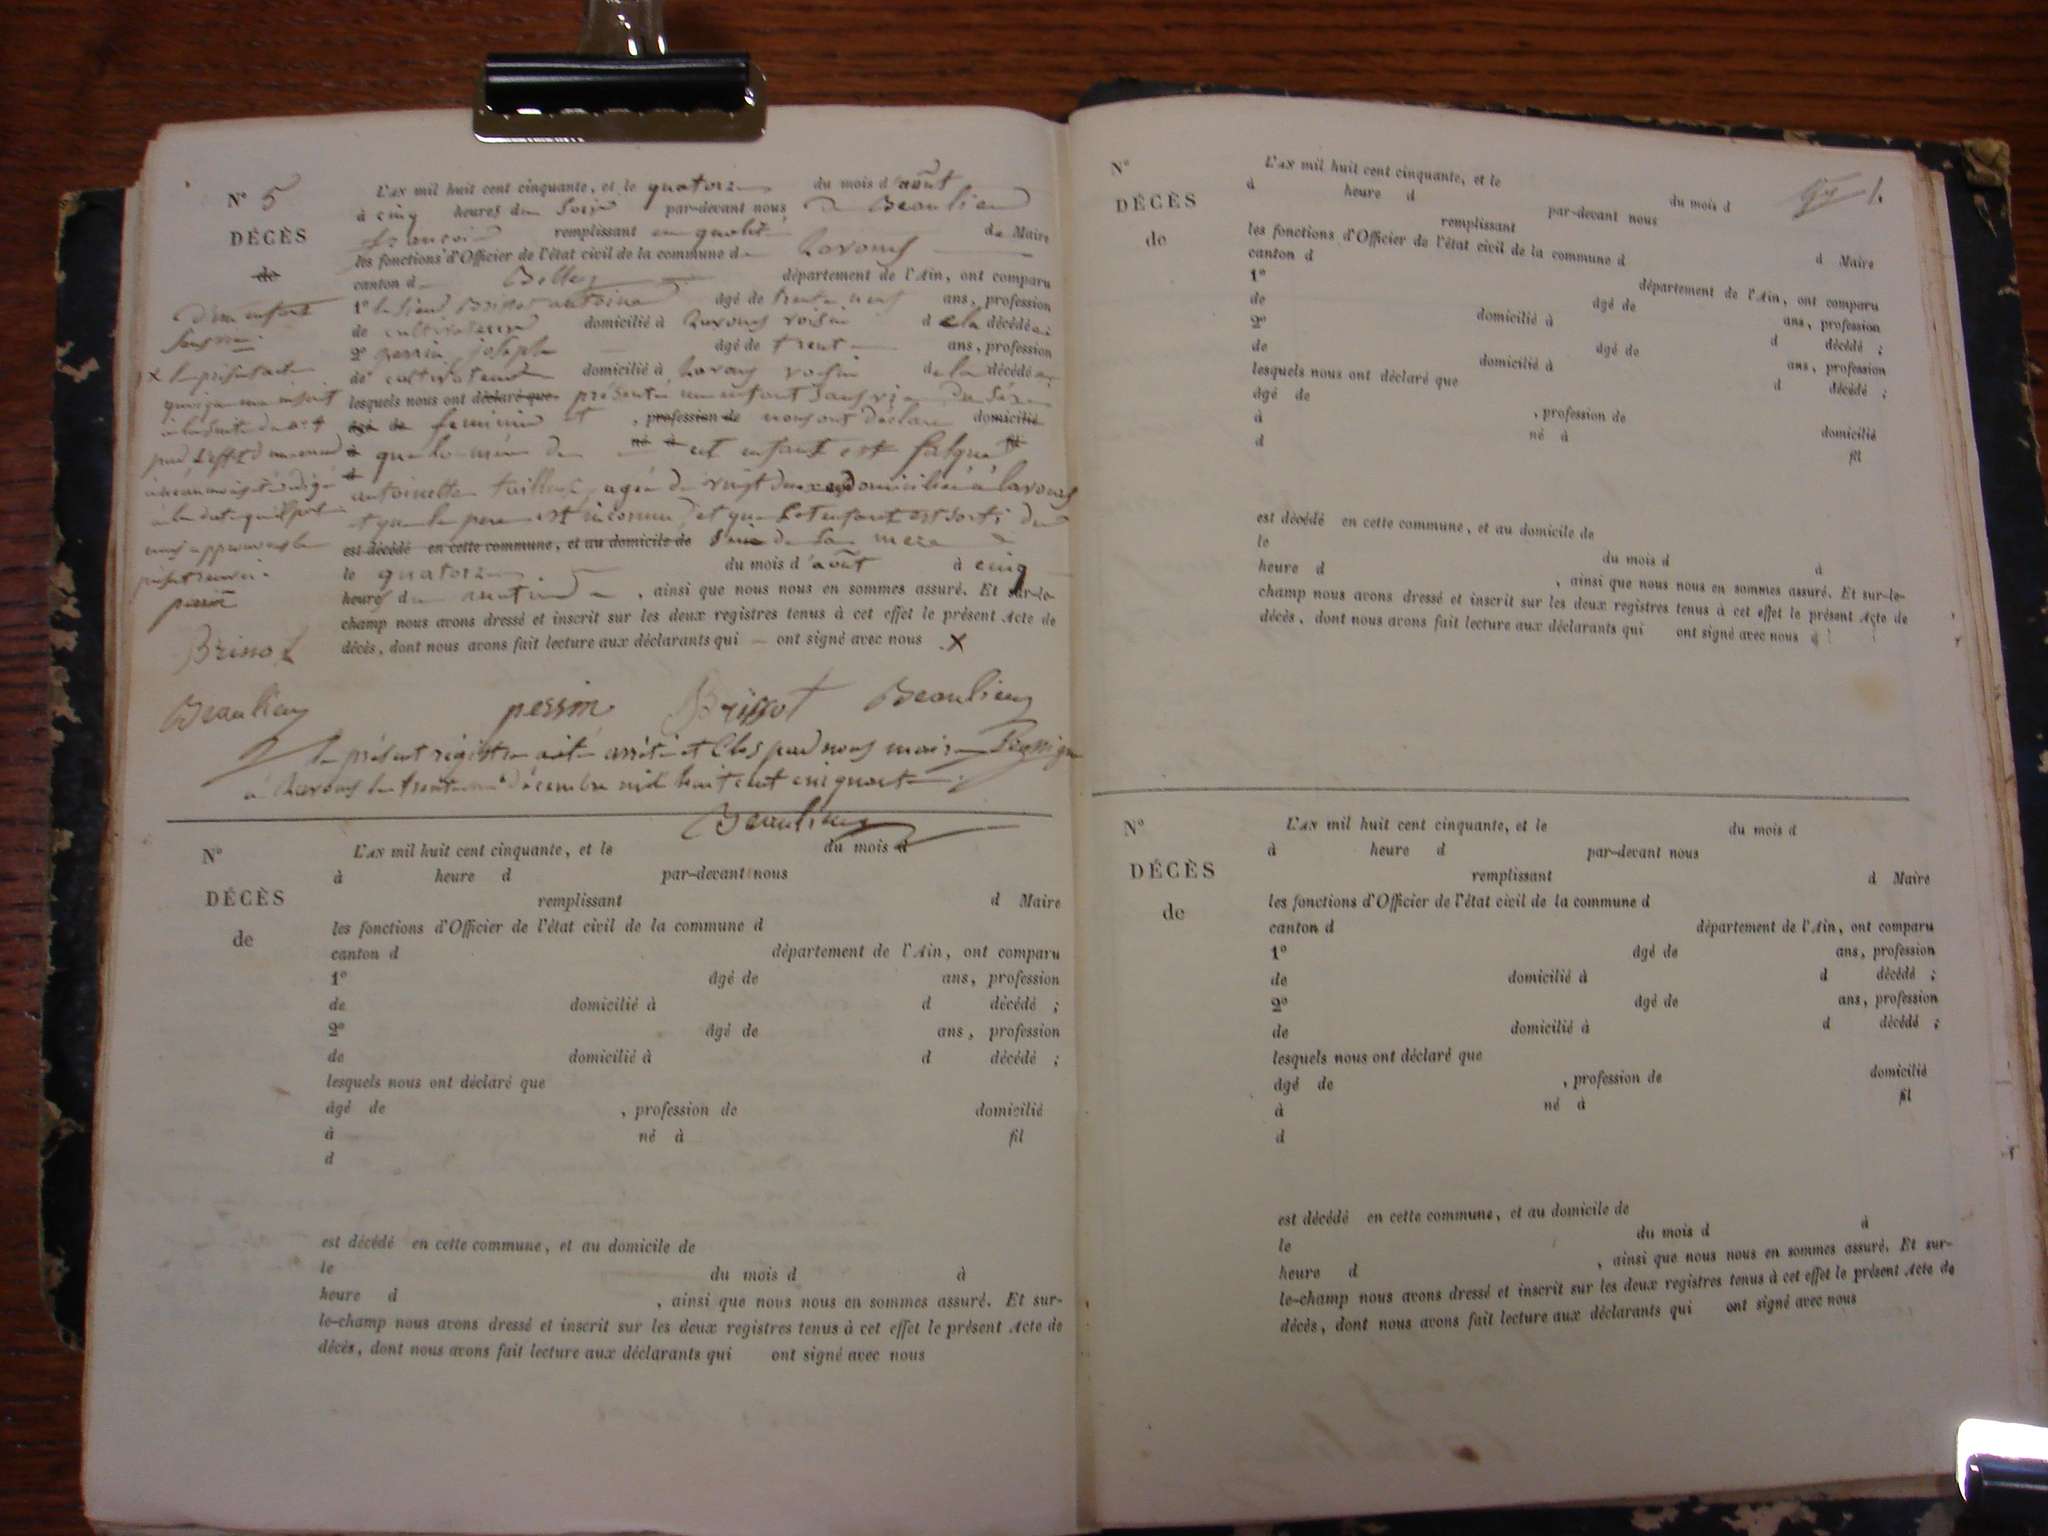 N° 5
DÉCÈS
de
d'un enfant
sans vie.
L'AN mil huit cent cinquante, et le quatorze du mois d'août
à cinq heures du soir par-devant nous de Beaulieu
françois remplissant en qualité de Maire
les fonctions d'Officier de l'état civil de la commune de Lavours
canton de Belley département de l'Ain, ont comparu
1° le sieur Brissot antoine âgé de trente neuf ans, profession
de cultivateur domicilié à Lavours voisin de la décédée
2° perrin joseph âgé de trente ans, profession
de cultivateur domicilié à Lavours voisin de la décédée
lesquels nous ont déclaré que présenté un enfant sans vie du sexe
âgé de feminin et , profession de nous ont déclaré domicilié
à que la mère de né à cet enfant est falquet fil
d antoinette agée de vingt deux domiciliée à lavours
et que le pere est inconnu, et que cet enfant est sorti du
est décédé en cette commune, et au domicile de sein de sa mere
le quatorze du mois d'août à cinq
heures du matin , ainsi que nous nous en sommes assuré. Et sur-le-
champ nous avons dressé et inscrit sur les deux registres tenus à cet effet le présent Acte de
décès, dont nous avons fait lecture aux déclarants qui ont signé avec nous . X
X le présent acte
quoique non inscrit
à la suite du n° 4
par l'effet d'une erreur
a néanmoins été rédigé
à la date qu'il porte
nous approuvons le
présent renvoi.
perrin
Brissot
Beaulieu
perrin Brissot Beaulieu
le présent registre a été arrêté et clos par nous maire
à Lavours le trente un décembre mil huit cent cinquante
Beaulieu
N°
DÉCÈS
de
L'AN mil huit cent cinquante, et le du mois d
à heure d par-devant nous
remplissant d Maire
les fonctions d'Officier de l'état civil de la commune d
canton d département de l'Ain, ont comparu
1° âgé de ans, profession
de domicilié à d décédé ;
2° âgé de ans, profession
de domicilié à d décédé ;
lesquels nous ont déclaré que
âgé de , profession de domicilié
à né à fil
d
est décédé en cette commune, et au domicile de
le du mois d à
heure d , ainsi que nous nous en sommes assuré. Et sur-
le-champ nous avons dressé et inscrit sur les deux registres tenus à cet effet le présent Acte de
décès, dont nous avons fait lecture aux déclarants qui ont signé avec nous
N°
DÉCÈS
de
L'AN mil huit cent cinquante, et le du mois d
à heure d par-devant nous
remplissant d Maire
les fonctions d'Officier de l'état civil de la commune d
canton d département de l'Ain, ont comparu
1° âgé de ans, profession
de domicilié à d décédé ;
2° âgé de ans, profession
de domicilié à d décédé ;
lesquels nous ont déclaré que
âgé de , profession de domicilié
à né à fil
d
est décédé en cette commune, et au domicile de
le du mois d à
heure d , ainsi que nous nous en sommes assuré. Et sur-le-
champ nous avons dressé et inscrit sur les deux registres tenus à cet effet le présent Acte de
décès, dont nous avons fait lecture aux déclarants qui ont signé avec nous
N°
DÉCÈS
de
L'AN mil huit cent cinquante, et le du mois d
à heure d par-devant nous
remplissant d Maire
les fonctions d'Officier de l'état civil de la commune d
canton d département de l'Ain, ont comparu
1° âgé de ans, profession
de domicilié à d décédé ;
2° âgé de ans, profession
de domicilié à d décédé ;
lesquels nous ont déclaré que
âgé de , profession de domicilié
à né à fil
d
est décédé en cette commune, et au domicile de
le du mois d à
heure d , ainsi que nous nous en sommes assuré. Et sur-
le-champ nous avons dressé et inscrit sur les deux registres tenus à cet effet le présent Acte de
décès, dont nous avons fait lecture aux déclarants qui ont signé avec nous